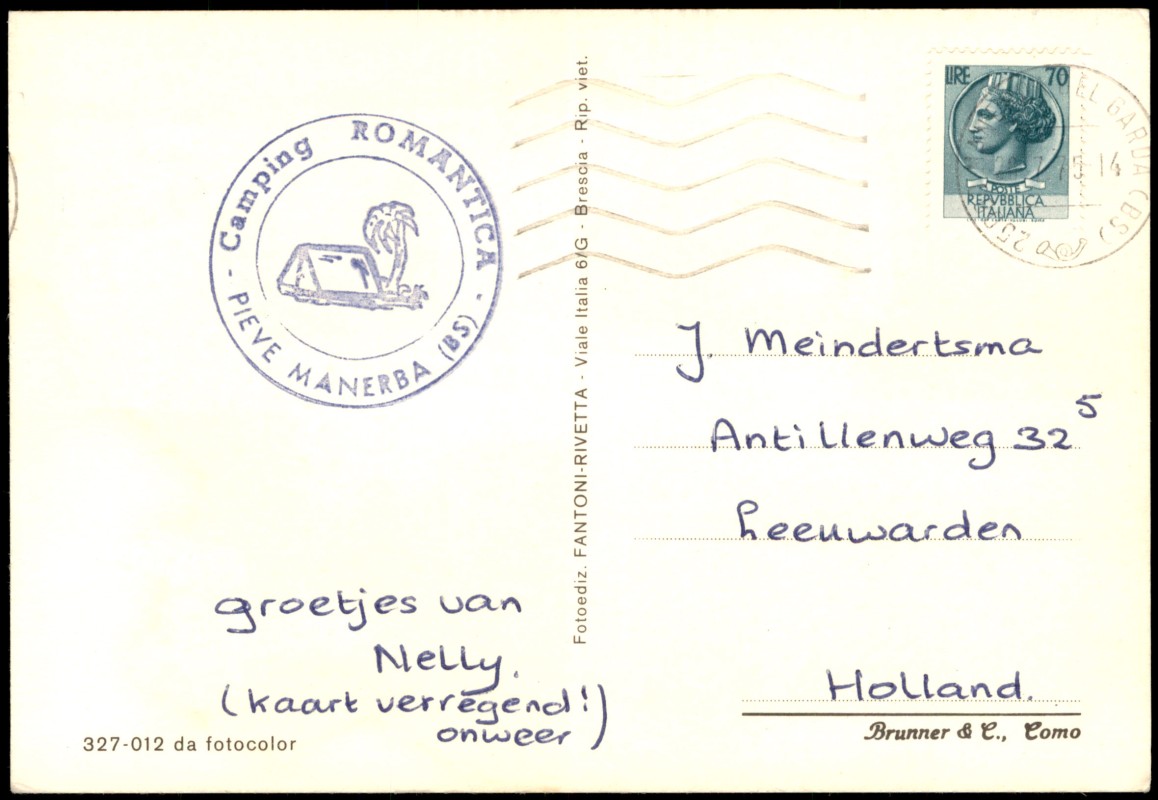 Camping ROMANTICA
PIEVE MANERBA (BS)
groetjes van
Nelly.
(kaart verregend!)
onweer
327-012 da fotocolor
Fotoediz. FANTONI-RIVETTA - Viale Italia 6/G - Brescia - Rip. viet.
LIRE 70
POSTE
REPVBBLICA
ITALIANA
EL GARDA (BS)
14
J. Meindertsma
Antillenweg 32⁵
Leeuwarden
Holland.
Brunner & C., Como